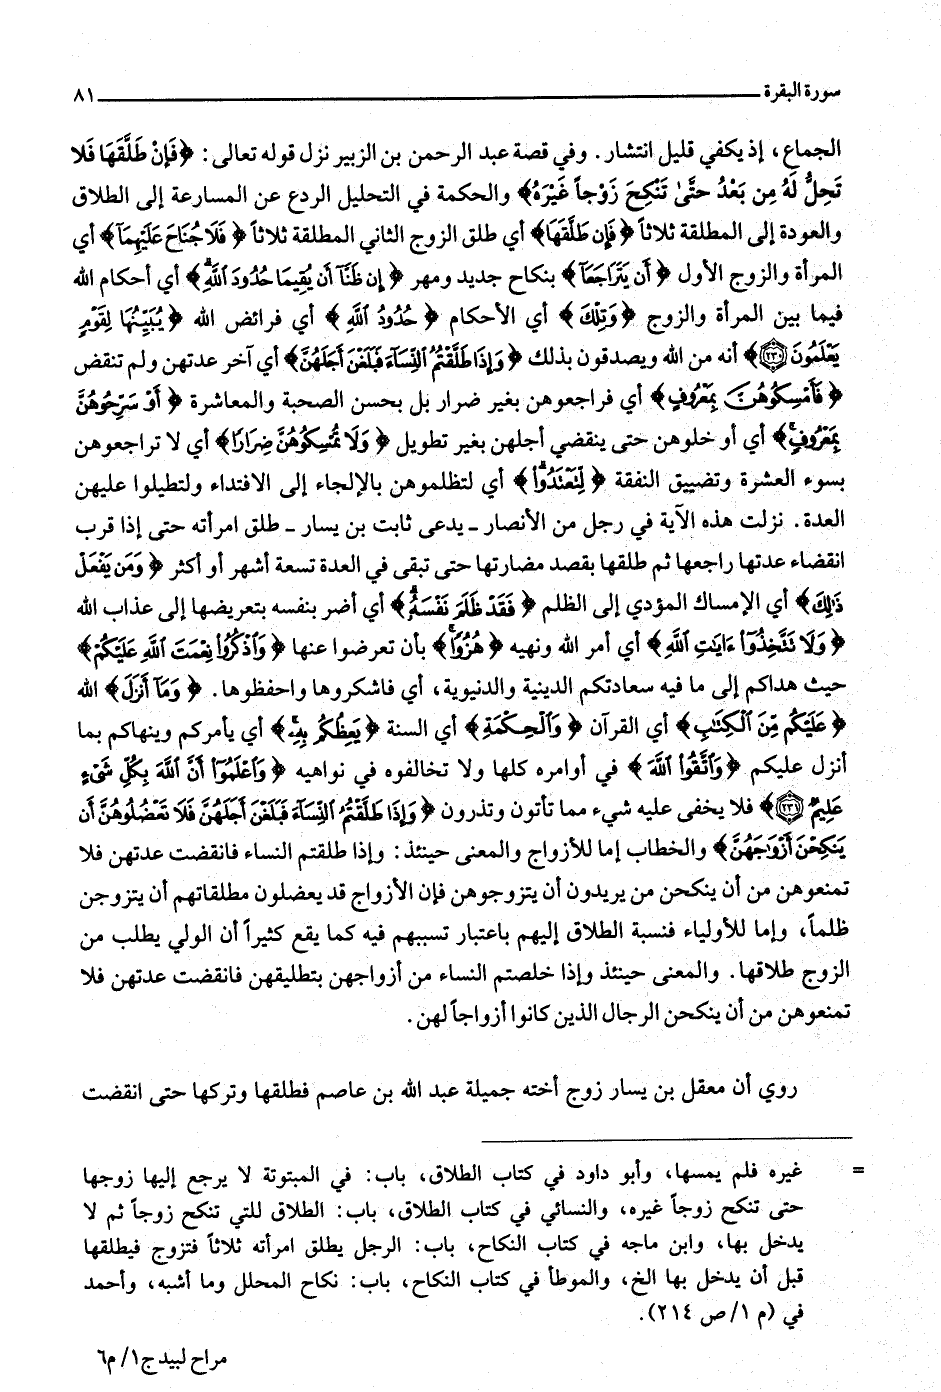 سورة البقرة ٨١
الجماع، إذ يكفي قليل انتشار. وفي قصة عبد الرحمن بن الزبير نزل قوله تعالى: ﴿فَإِنْ طَلَّقَهَا فَلا
تَحِلُّ لَهُ مِن بَعْدُ حتَّىٰ تَنْكِحَ زَوْجاً غَيْرَهُ﴾ والحكمة في التحليل الردع عن المسارعة إلى الطلاق
والعودة إلى المطلقة ثلاثاً ﴿فَإِن طَلَّقَهَا﴾ أي طلق الزوج الثاني المطلقة ثلاثاً ﴿فَلَا جُنَاحَ عَلَيْهِمَآ﴾ أي
المرأة والزوج الأول ﴿أَن يَتَرَاجَعَآ﴾ بنكاح جديد ومهر ﴿إِن ظَنَّآ أَن يُقِيمَا حُدُودَ ٱللَّهِۗ﴾ أي أحكام الله
فيما بين المرأة والزوج ﴿وَتِلْكَ﴾ أي الأحكام ﴿حُدُودُ ٱللَّهِ﴾ أي فرائض الله ﴿يُبَيِّنُهَا لِقَوْمٍ
يَعْلَمُونَ ٢٣٠﴾ أنه من الله ويصدقون بذلك ﴿وَإِذَا طَلَّقْتُمُ ٱلنِّسَآءَ فَبَلَغْنَ أَجَلَهُنَّ﴾ أي آخر عدتهن ولم تنقض
﴿فَأَمْسِكُوهُنَّ بِمَعْرُوفٍ﴾ أي فراجعوهن بغير ضرار بل بحسن الصحبة والمعاشرة ﴿أَوْ سَرِّحُوهُنَّ
بِمَعْرُوفٍۚ﴾ أي أو خلوهن حتى ينقضي أجلهن بغير تطويل ﴿وَلَا تُمْسِكُوهُنَّ ضِرَارًا﴾ أي لا تراجعوهن
بسوء العشرة وتضييق النفقة ﴿لِّتَعْتَدُواْۚ﴾ أي لتظلموهن بالإلجاء إلى الافتداء ولتطيلوا عليهن
العدة. نزلت هذه الآية في رجل من الأنصار ـ يدعى ثابت بن يسار ـ طلق امرأته حتى إذا قرب
انقضاء عدتها راجعها ثم طلقها بقصد مضارتها حتى تبقى في العدة تسعة أشهر أو أكثر ﴿وَمَن يَفْعَلْ
ذَٰلِكَ﴾ أي الإمساك المؤدي إلى الظلم ﴿فَقَدْ ظَلَمَ نَفْسَهُۥۚ﴾ أي أضر بنفسه بتعريضها إلى عذاب الله
﴿وَلَا تَتَّخِذُوٓاْ ءَايَٰتِ ٱللَّهِ﴾ أي أمر الله ونهيه ﴿هُزُوٗاۚ﴾ بأن تعرضوا عنها ﴿وَٱذْكُرُواْ نِعْمَتَ ٱللَّهِ عَلَيْكُمْ﴾
حيث هداكم إلى ما فيه سعادتكم الدينية والدنيوية، أي فاشكروها واحفظوها. ﴿وَمَآ أَنزَلَ﴾ الله
﴿عَلَيْكُم مِّنَ ٱلْكِتَٰبِ﴾ أي القرآن ﴿وَٱلْحِكْمَةِ﴾ أي السنة ﴿يَعِظُكُم بِهِۦۚ﴾ أي يأمركم وينهاكم بما
أنزل عليكم ﴿وَٱتَّقُواْ ٱللَّهَ﴾ في أوامره كلها ولا تخالفوه في نواهيه ﴿وَٱعْلَمُوٓاْ أَنَّ ٱللَّهَ بِكُلِّ شَىْءٍ
عَلِيمٌ ٢٣١﴾ فلا يخفى عليه شيء مما تأتون وتذرون ﴿وَإِذَا طَلَّقْتُمُ ٱلنِّسَآءَ فَبَلَغْنَ أَجَلَهُنَّ فَلَا تَعْضُلُوهُنَّ أَن
يَنكِحْنَ أَزْوَٰجَهُنَّ﴾ والخطاب إما للأزواج والمعنى حينئذ: وإذا طلقتم النساء فانقضت عدتهن فلا
تمنعوهن من أن ينكحن من يريدون أن يتزوجوهن فإن الأزواج قد يعضلون مطلقاتهم أن يتزوجن
ظلماً، وإما للأولياء فنسبة الطلاق إليهم باعتبار تسببهم فيه كما يقع كثيراً أن الولي يطلب من
الزوج طلاقها. والمعنى حينئذ وإذا خلصتم النساء من أزواجهن بتطليقهن فانقضت عدتهن فلا
تمنعوهن من أن ينكحن الرجال الذين كانوا أزواجاً لهن.
روي أن معقل بن يسار زوج أخته جميلة عبد الله بن عاصم فطلقها وتركها حتى انقضت
= غيره فلم يمسها، وأبو داود في كتاب الطلاق، باب: في المبتوتة لا يرجع إليها زوجها
حتى تنكح زوجاً غيره، والنسائي في كتاب الطلاق، باب: الطلاق للتي تنكح زوجاً ثم لا
يدخل بها، وابن ماجه في كتاب النكاح، باب: الرجل يطلق امرأته ثلاثاً فتزوج فيطلقها
قبل أن يدخل بها الخ، والموطأ في كتاب النكاح، باب: نكاح المحلل وما أشبه، وأحمد
في (م ١/ ص ٢١٤).
مراح لبيد ج١/ م٦